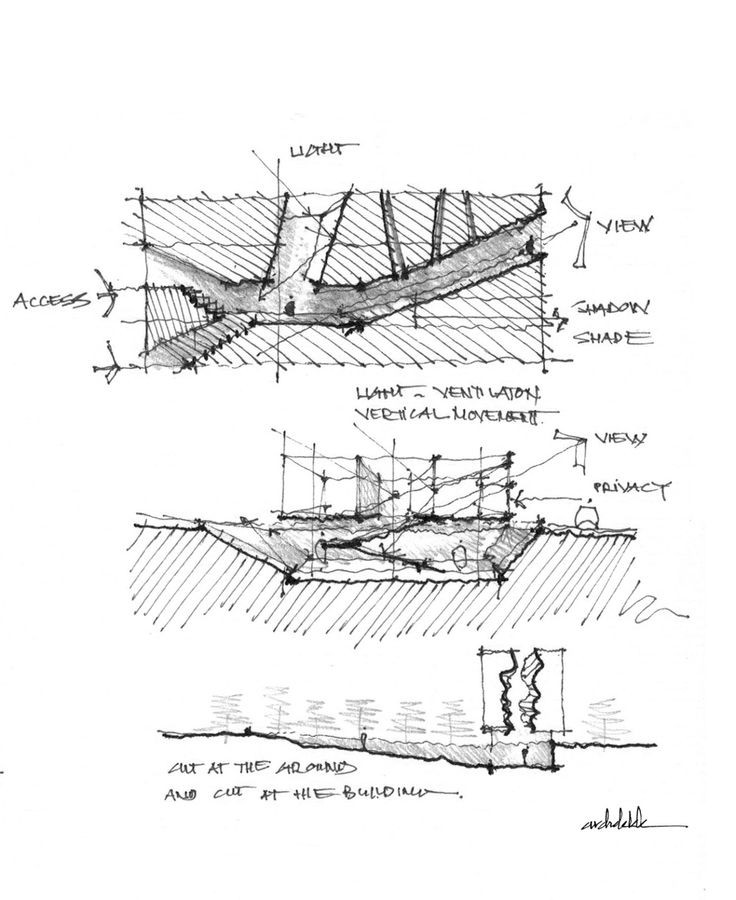 LIGHT
VIEW
ACCESS
SHADOW
SHADE
LIGHT - VENTILATON
VERTICAL MOVEMENT.
VIEW
PRIVACY
CUT AT THE GROUND
AND CUT AT THE BUILDING.